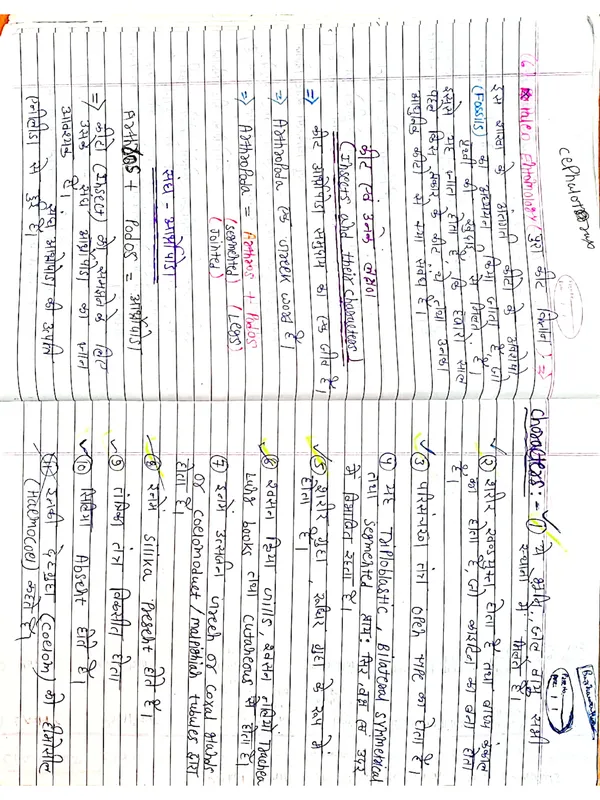 cephalothorax
(6) Palen Entomology (पुरा कीट विज्ञान) ⇒
इस शाखा के अंतर्गत कीटों के अवशेषों
(Fossils) का अध्ययन किया जाता है, जो
पृथ्वी की खुदाई से मिलते हैं।
इससे यह ज्ञात होता है, कि हजारों साल
पहले किस प्रकार के कीट थे तथा उनका
आधुनिक कीटों से क्या संबंध है।
कीट एवं उनके लक्षण
(Insects and their characters)
⇒ कीट आर्थ्रोपोडा समुदाय का एक जीव है।
⇒ Arthropoda एक greek word है।
⇒ Arthropoda = Arthros + Podos
(segmented) (Legs)
(Jointed)
संघ - आर्थ्रोपोडा
Arthros + Podos = आर्थ्रोपोडा
⇒ कीट (Insect) को समझने के लिए
उसके संघ आर्थ्रोपोडा का ज्ञान
आवश्यक है।
संघ आर्थ्रोपोडा की उत्पत्ति
एनीलिडा से हुई है।
characters: -
① ये भूमि, जल तथा सभी
स्थानों में मिलते हैं।
② शरीर खण्डयुक्त होता है तथा बाह्य कंकाल
का होता है, जो काइटिन का बना होता
है।
③ परिसंचरण तंत्र open type का होता है।
④ यह Triploblastic, Bilateral symmetrical
तथा segmented प्रायः सिर वक्ष एवं उदर
में विभाजित रहता है।
⑤ शरीर गुहा, रुधिर गुहा के रूप में
होता है।
⑥ श्वसन क्रिया gills, श्वसन नलिका Trachea
Lung books तथा cutaneous से होता है।
⑦ इनमें उत्सर्जन green or coxal glands
or coelomoduct / malpighian tubules द्वारा
होता है।
⑧ इनमें Silika Present होते हैं।
⑨ तंत्रिका तंत्र विकसित होता
⑩ सिलिया Absent होते हैं।
⑪ इनकी देहगुहा (Coelom) को हीमोसील
(Haemocoel) कहते हैं।